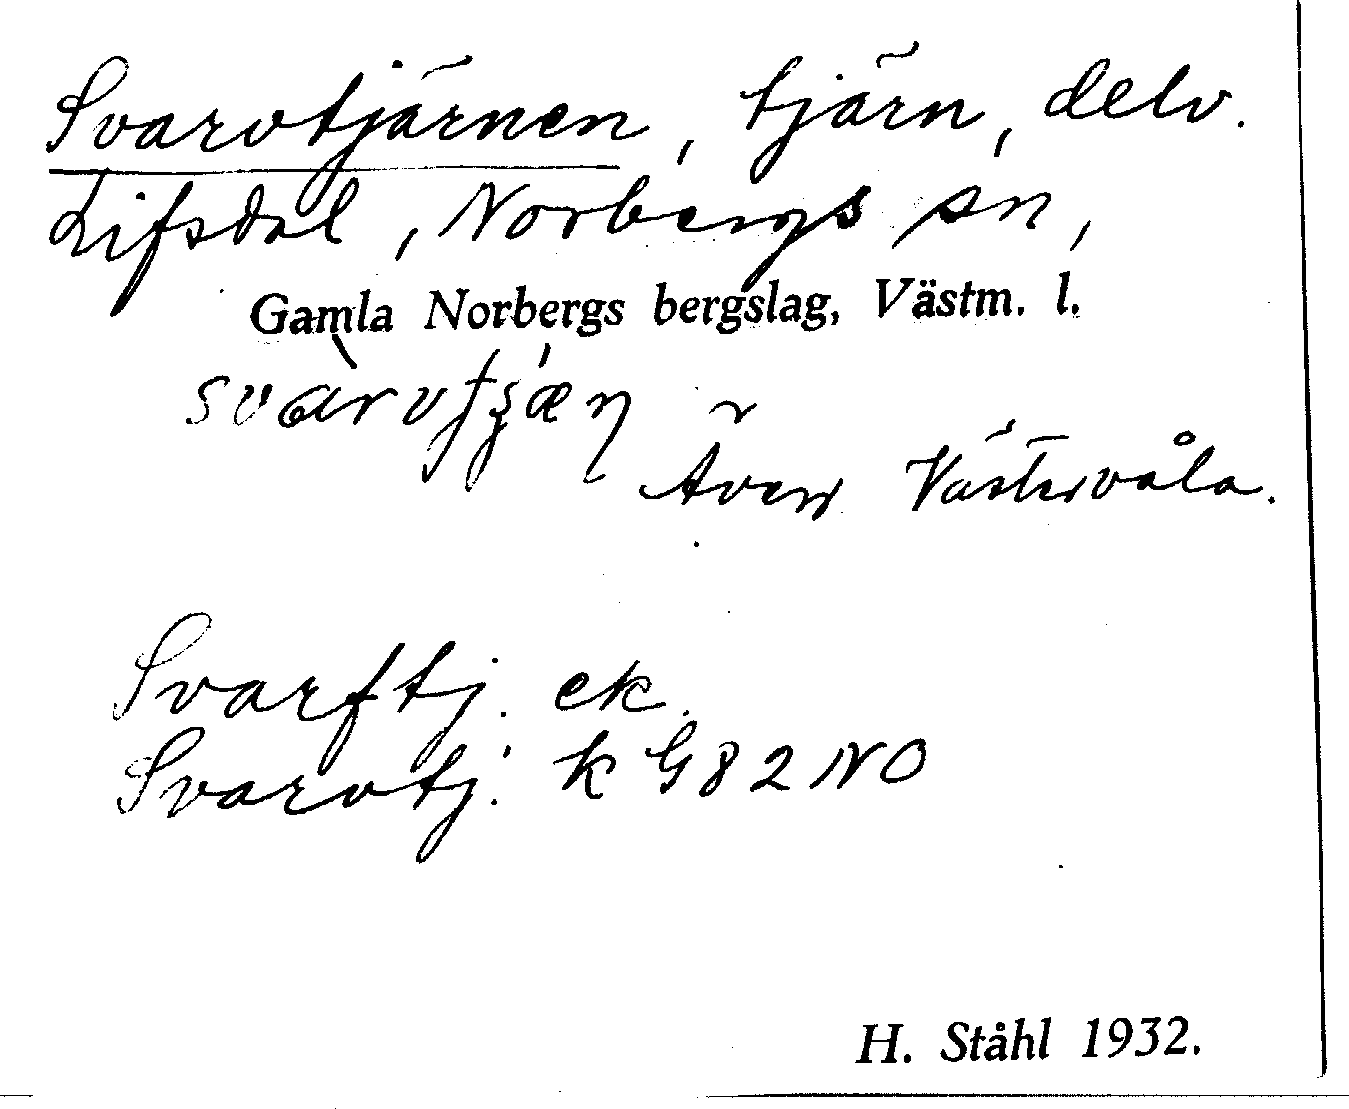 Svarvtjärnen, tjärn, delv.
Lifsdal, Norbergs sn,
Gamla Norbergs bergslag, Västm. l.
Även Västervåla.
Svarftj. ek.
Svarvtj. k G82NO
H. Ståhl 1932.